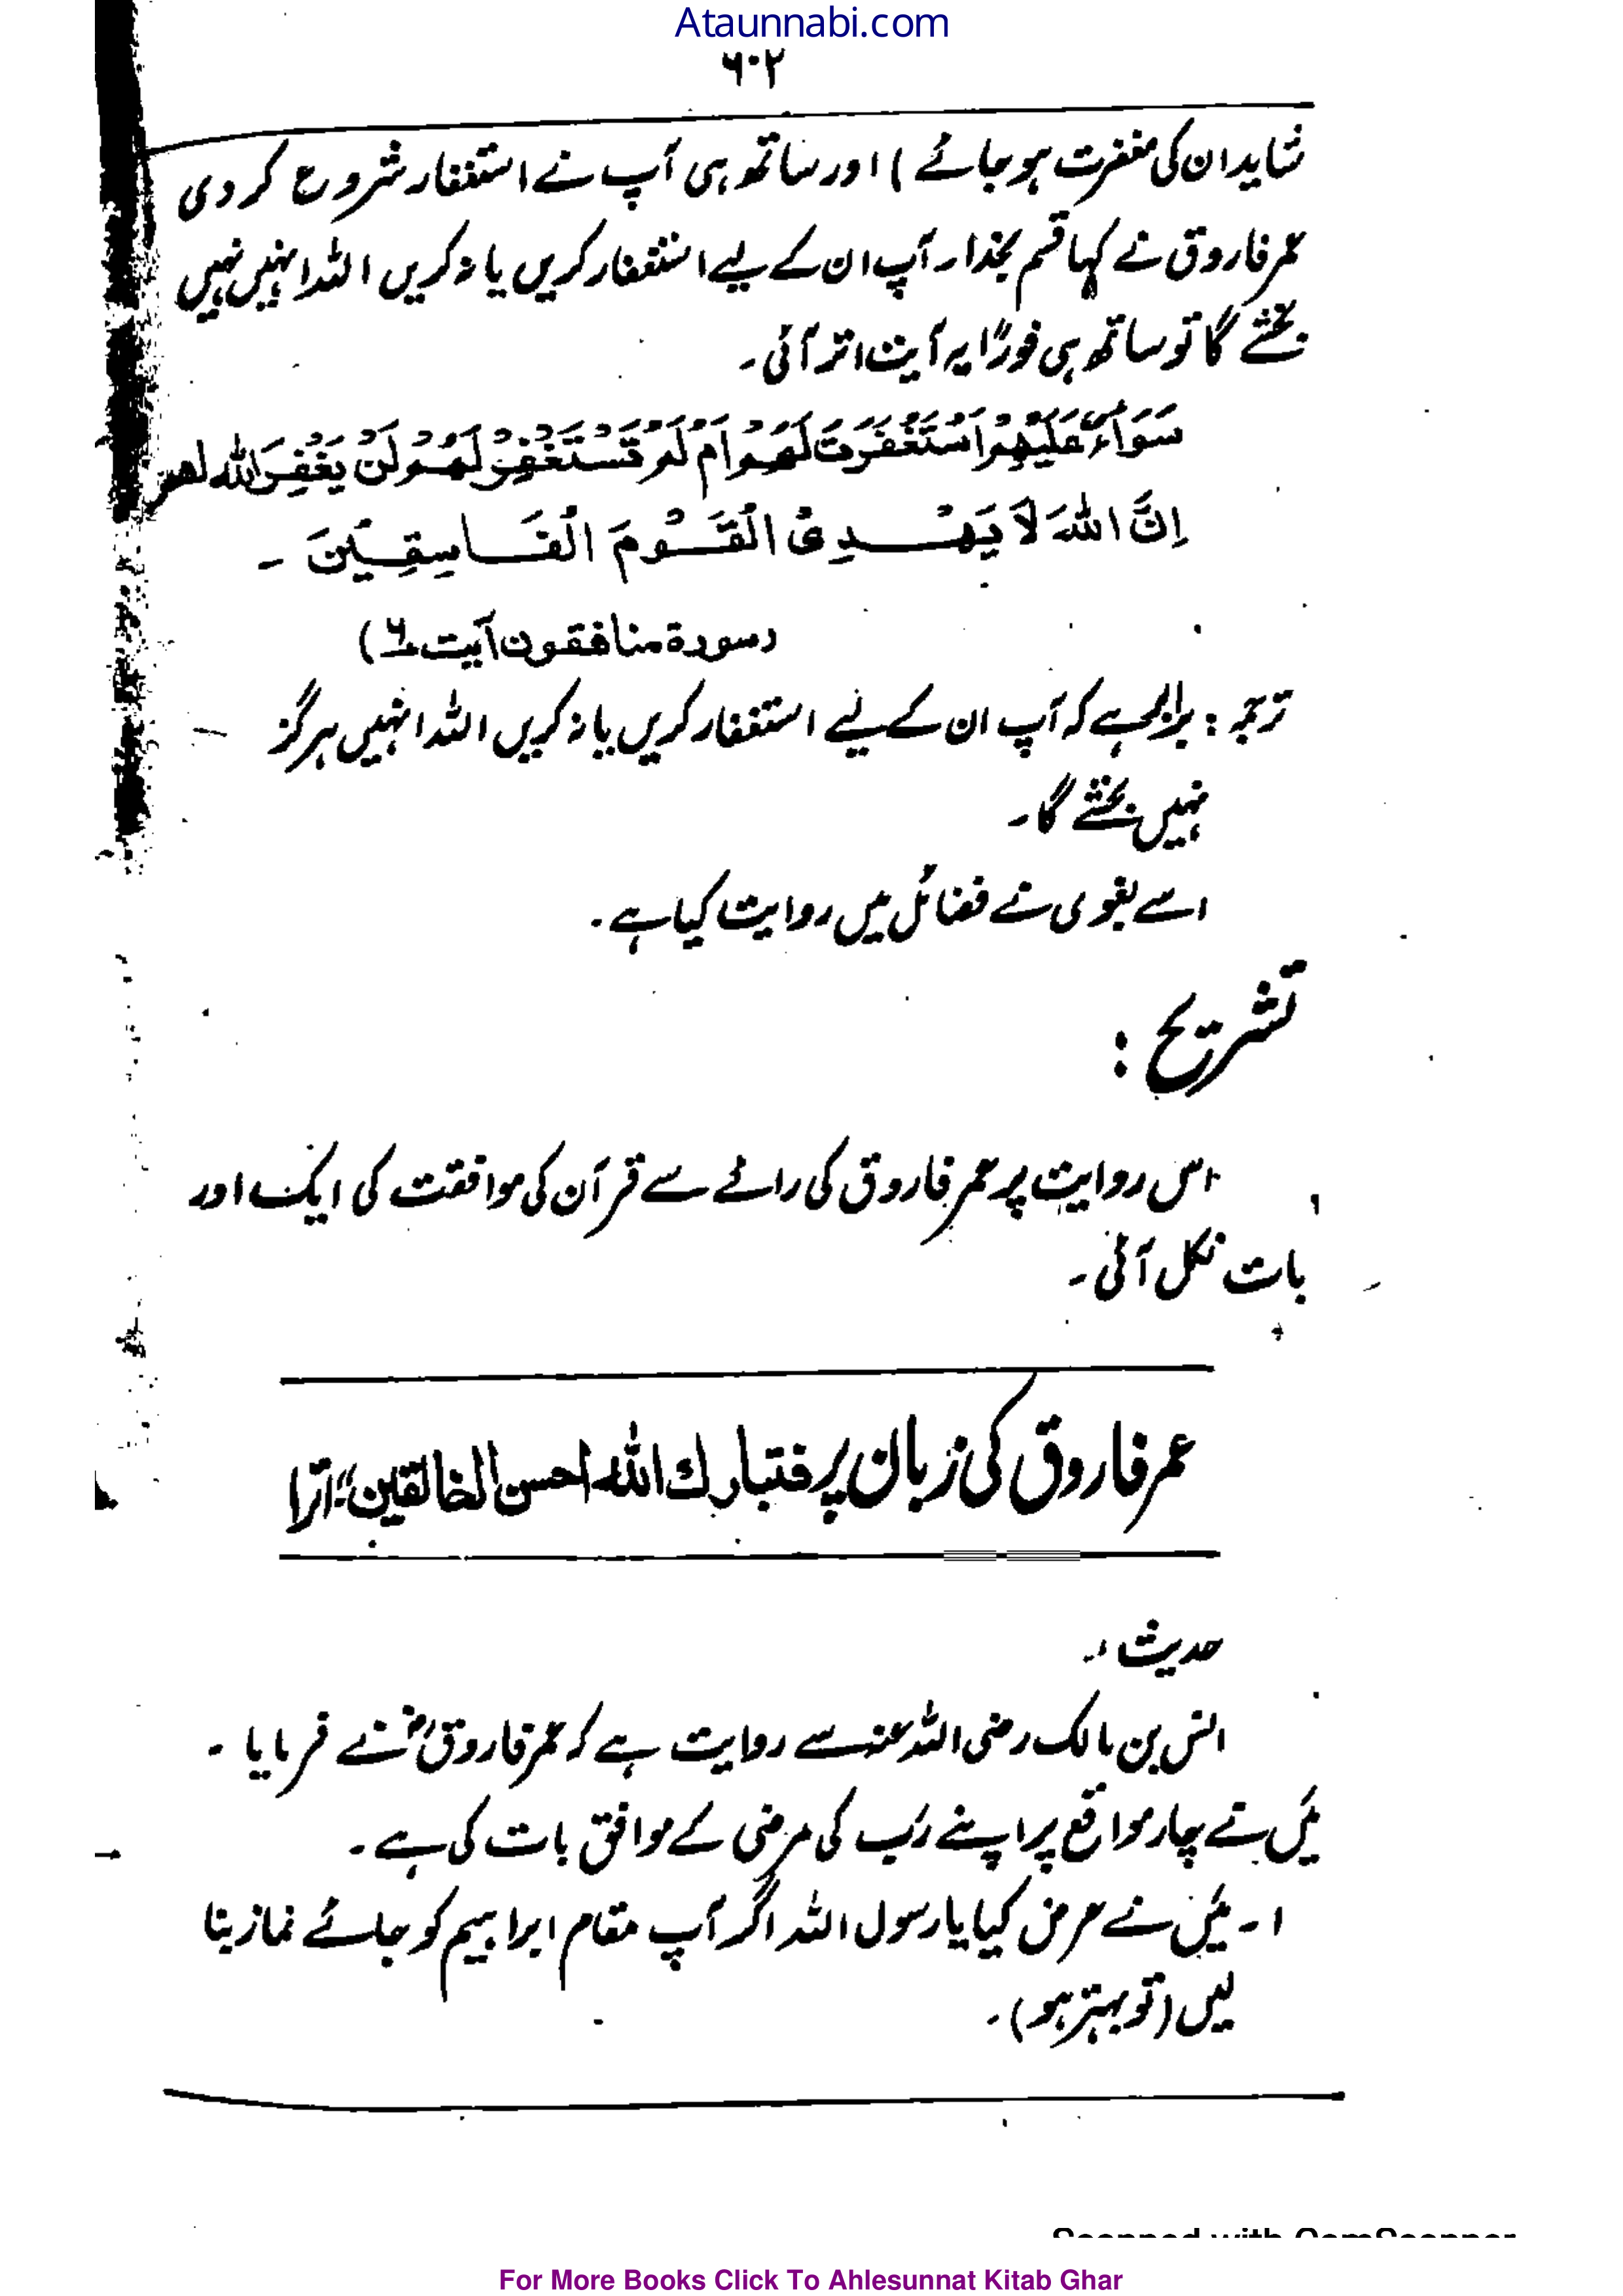 Ataunnabi.com
۶۰۲
شاید ان کی مغفرت ہو جائے) اور ساتھ ہی آپ نے استغفار شروع کر دی
عمر فاروق نے کہا قسم بخدا۔ آپ ان کے لیے استغفار کریں یا نہ کریں اللہ انہیں نہیں
بخشے گا تو ساتھ ہی فورًا یہ آیت اتر آئی۔
سَوَآءٌ عَلَيْهِمْ اَسْتَغْفَرْتَ لَهُمْ اَمْ لَمْ تَسْتَغْفِرْ لَهُمْ لَنْ يَغْفِرَ اللّٰه لهم
اِنَّ اللّٰهَ لَا يَهْدِى الْقَوْمَ الْفَاسِقِيْنَ ۔
(سورة منافقون آیت ۶)
ترجمہ: برابر ہے کہ آپ ان کے لیے استغفار کریں یا نہ کریں اللہ انہیں ہرگز
نہیں بخشے گا۔
اسے بغوی نے فضائل میں روایت کیا ہے۔
تشریح :
اس روایت پر عمر فاروق کی رائے سے قرآن کی موافقت کی ایک اور
بات نکل آئی۔
عمر فاروق کی زبان پر فتبارك الله احسن الخالقین" اترا
حدیث :۔
انس بن مالک رضی اللہ عنہ سے روایت ہے کہ عمر فاروقؓ نے فرمایا ۔
میں نے چار مواقع پر اپنے رب کی مرضی کے موافق بات کی ہے۔
۱۔ میں نے عرض کیا یا رسول اللہ اگر آپ مقام ابراہیم کو جائے نماز بنا
لیں (تو بہتر ہو)۔
Scanned with CamScanner
For More Books Click To Ahlesunnat Kitab Ghar